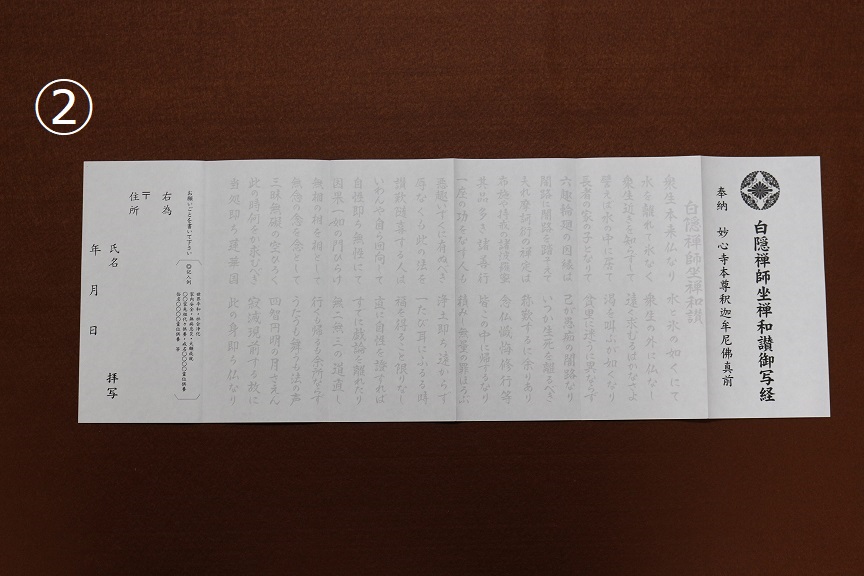 ②
白隠禅師坐禅和讃御写経
奉納 妙心寺本尊釈迦牟尼佛真前
白隠禅師坐禅和讃
衆生本来佛なり 水と氷の如くにて
水を離れて氷なく 衆生の外に佛なし
衆生近きを知らずして 遠く求むるはかなさよ
譬えば水の中に居て 渇を叫ぶが如くなり
長者の家の子となりて 貧里に迷うに異ならず
六趣輪廻の因縁は 己が愚痴の闇路なり
闇路に闇路を踏そえて いつか生死を離るべき
夫れ摩訶衍の禅定は 称歎するに余りあり
布施や持戒の諸波羅蜜 念佛懺悔修行等
其品多き諸善行 皆この中に帰するなり
一座の功をなす人も 積みし無量の罪ほろぶ
悪趣いずくに有ぬべき 浄土即ち遠からず
辱なくも此の法を 一たび耳にふるる時
讃歎随喜する人は 福を得ること限りなし
いわんや自ら回向して 直に自性を證すれば
自性即ち無性にて すでに戯論を離れたり
因果一如の門ひらけ 無二無三の道直し
無相の相を相として 行くも帰るも余所ならず
無念の念を念として うたうも舞うも法の声
三昧無碍の空ひろく 四智円明の月さえん
此の時何をか求むべき 寂滅現前する故に
当処即ち蓮華国 此の身即ち佛なり
お願いごとを書いて下さい
◎記入例
世界平和・社会浄化
家内安全・無病息災・大願成就
○○家先祖代々供養・戒名○○○○霊位供養
俗名○○○○霊位供養 等
右為
〒
住所
氏名 拝写
年 月 日